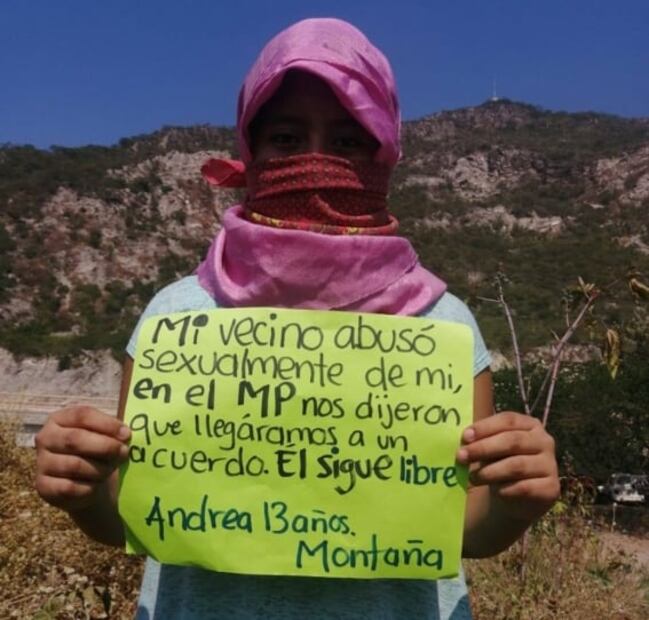 Mi vecino abusó
sexualmente de mi,
en el MP nos dijeron
que llegáramos a un
acuerdo. El sigue libre
Andrea 13 años.
Montaña